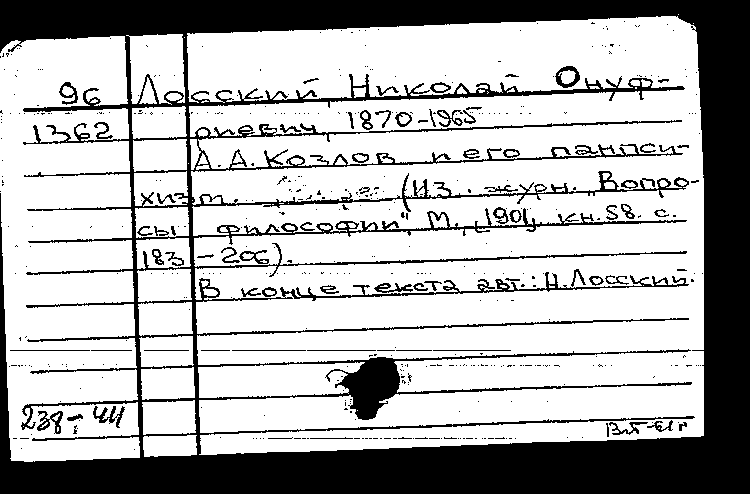 96 Лосский, Николай Онуф-
1362 риевич, 1870-1965
А.А. Козлов и его панпси-
хизм. (Из журн. „Вопро-
сы философии", М., [1901], кн. 58. с.
183-206).
В конце текста авт.: Н. Лосский.
238-44